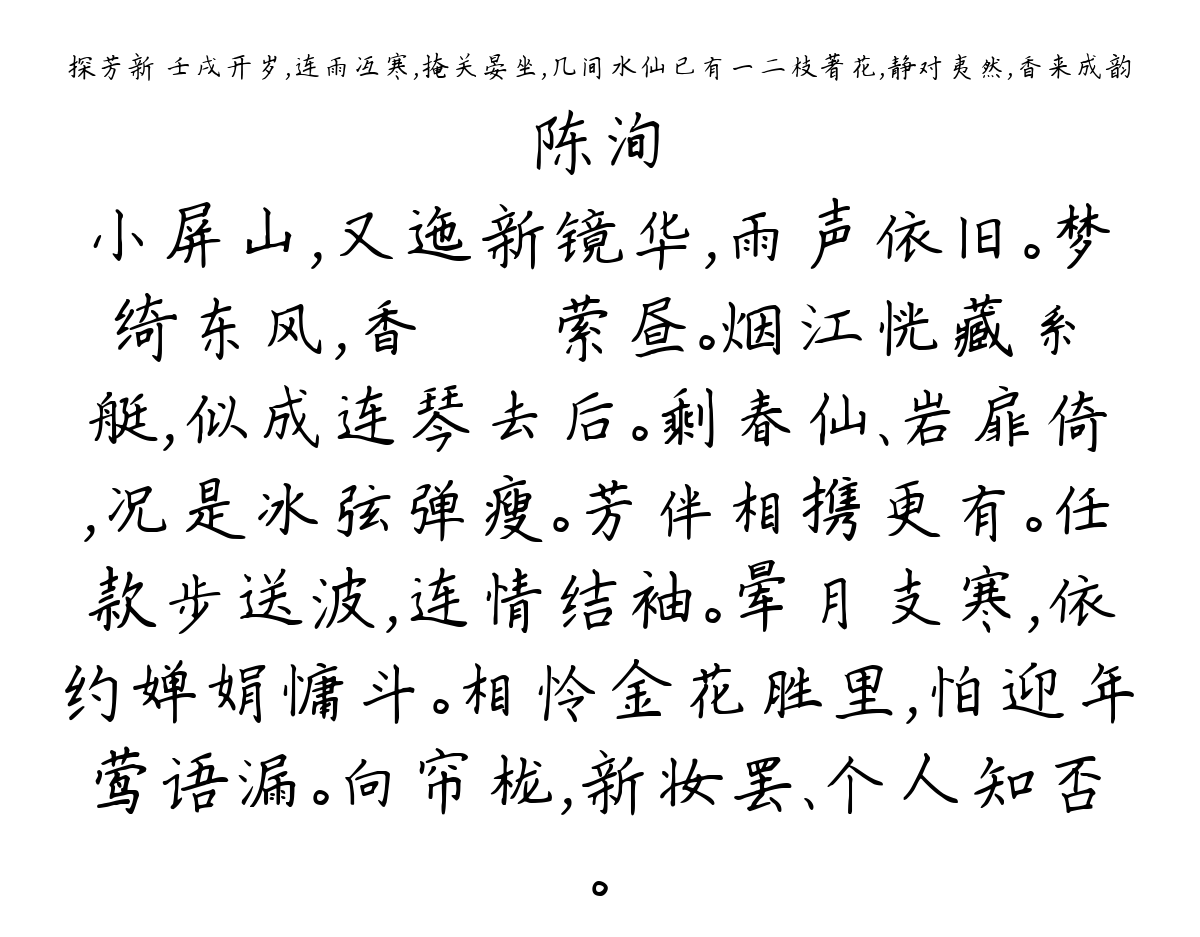 探芳新 壬戌开岁,连雨冱寒,掩关晏坐,几间水仙已有一二枝著花,静对夷然,香来成韵
陈洵
小屏山,又迤新镜华,雨声依旧。梦
绮东风,香 萦昼。烟江恍藏系
艇,似成连琴去后。剩春仙、岩扉倚
,况是冰弦弹瘦。芳伴相携更有。任
款步送波,连情结袖。晕月支寒,依
约婵娟慵斗。相怜金花胜里,怕迎年
莺语漏。向帘栊,新妆罢、个人知否
。